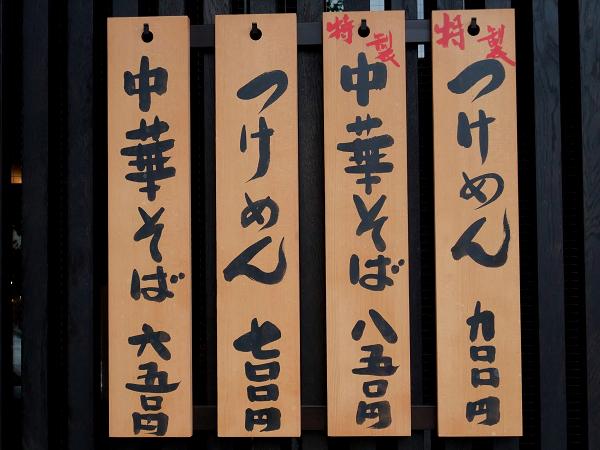 中華そば 六五〇円
つけめん 七〇〇円
特製
中華そば 八五〇円
特製
つけめん 九〇〇円